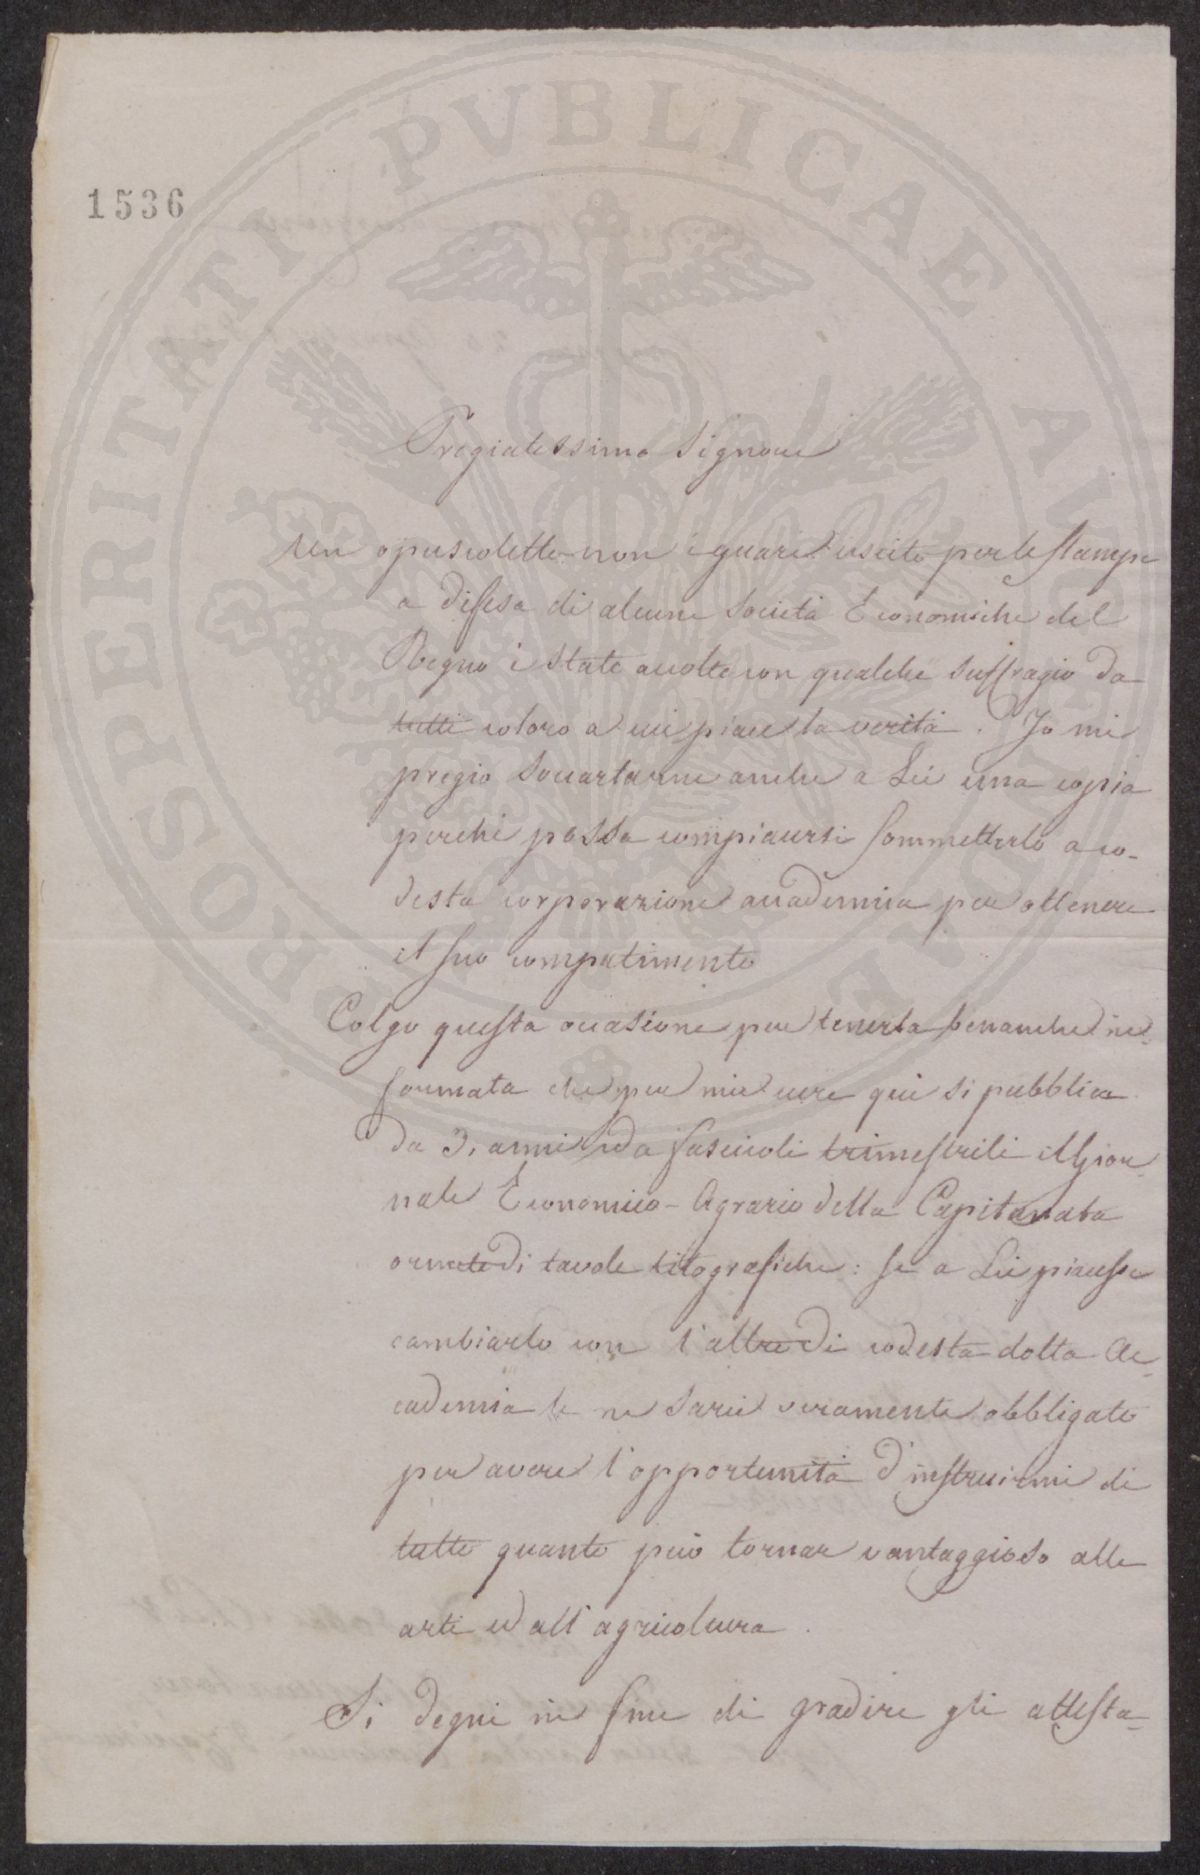 PROSPERITATI PVBLICAE AVGENDAE
1536
Pregiatissimo Signore
Un opuscoletto non è guari uscito per le stampe
a difesa di alcune Società Economiche del
Regno è stato accolto con qualche suffragio da
tutti coloro a cui piace la verità. Io mi
pregio scartarne anche a Lei una copia
perchè possa compiacersi sommetterlo a co-
desta corporazione accademica per ottenere
il suo compatimento
Colgo questa occasione per tenerla benanche in-
formata che per mie cure qui si pubblica
da 3. anni ed a fascicoli trimestrili il Gior-
nale Economico-Agrario della Capitanata
ornato di tavole litografiche: se a Lei piacesse
cambiarlo con l'altro di codesta dotta Ac-
cademia le ne sarei veramente obbligato
per avere l'opportunità d'instruirmi di
tutto quanto può tornar vantaggioso alle
arti ed all'agricoltura.
Si degni in fine di gradire gli attesta-